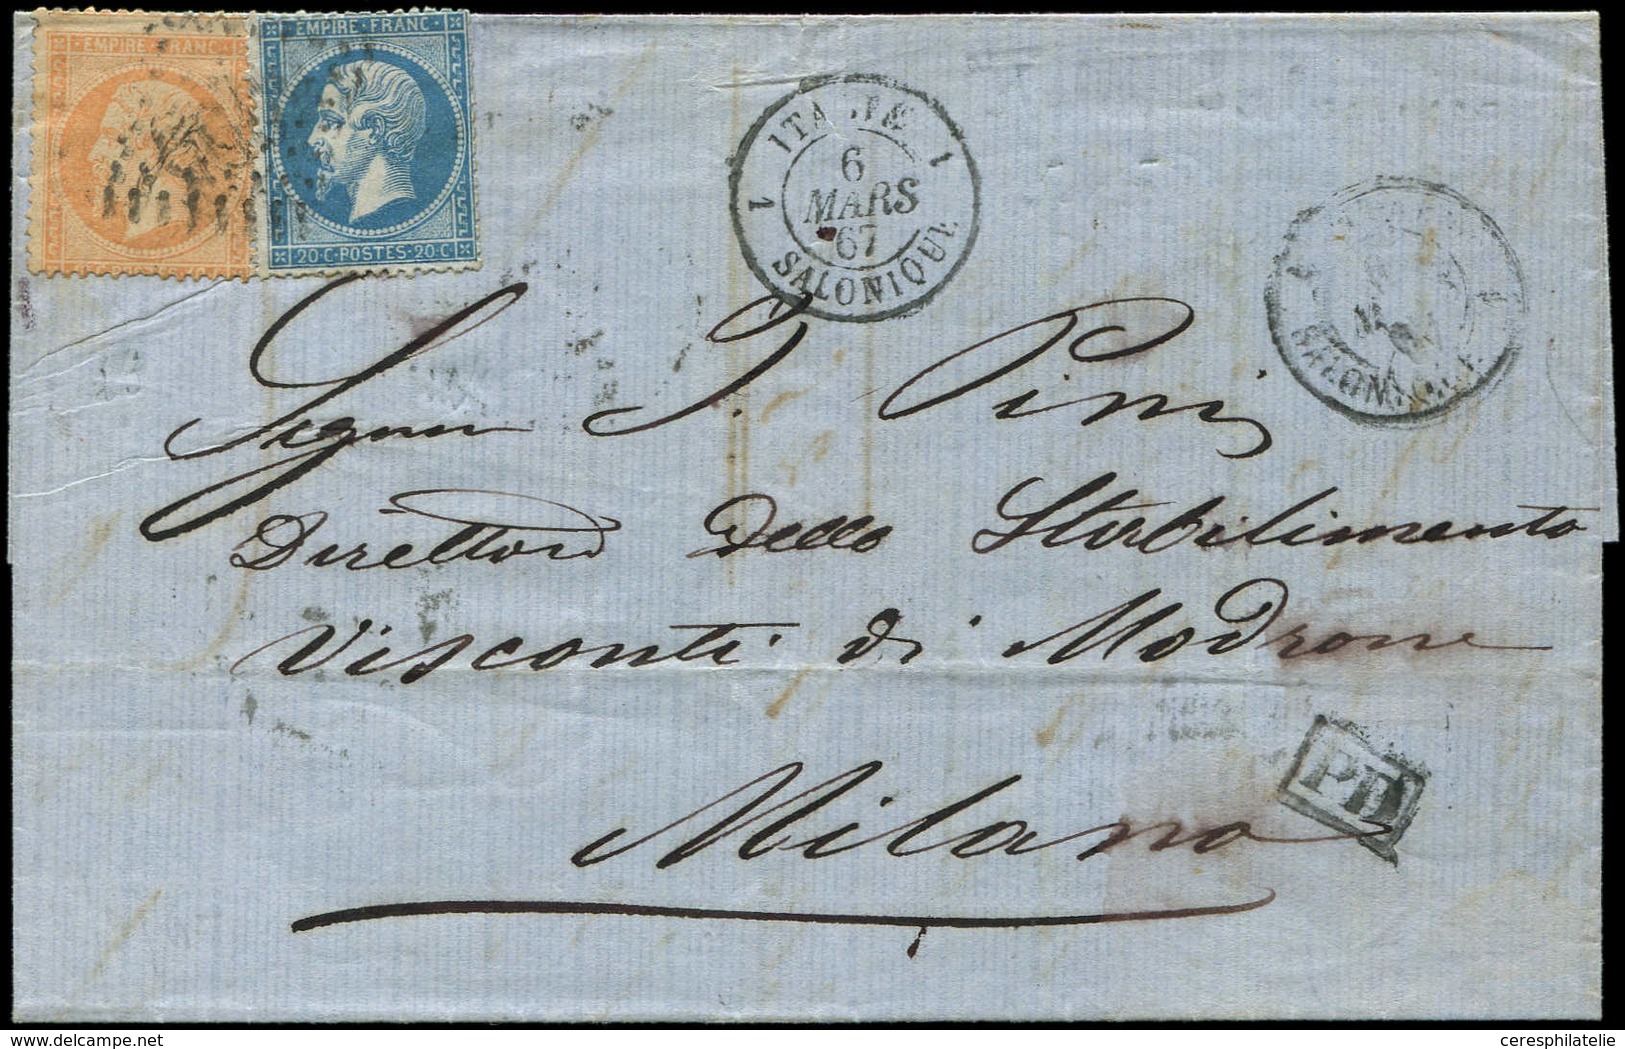 EMPIRE·FRANC
EMPIRE·FRANC
20·C·POSTES·20·C
1 1
6
MARS
67
SALONIQUE
SALONIQUE
Signor J. Pini
Direttore dello Stabilimento
Visconti di Modrone
PD
Milano
delcampe.net
ceresphilatelie